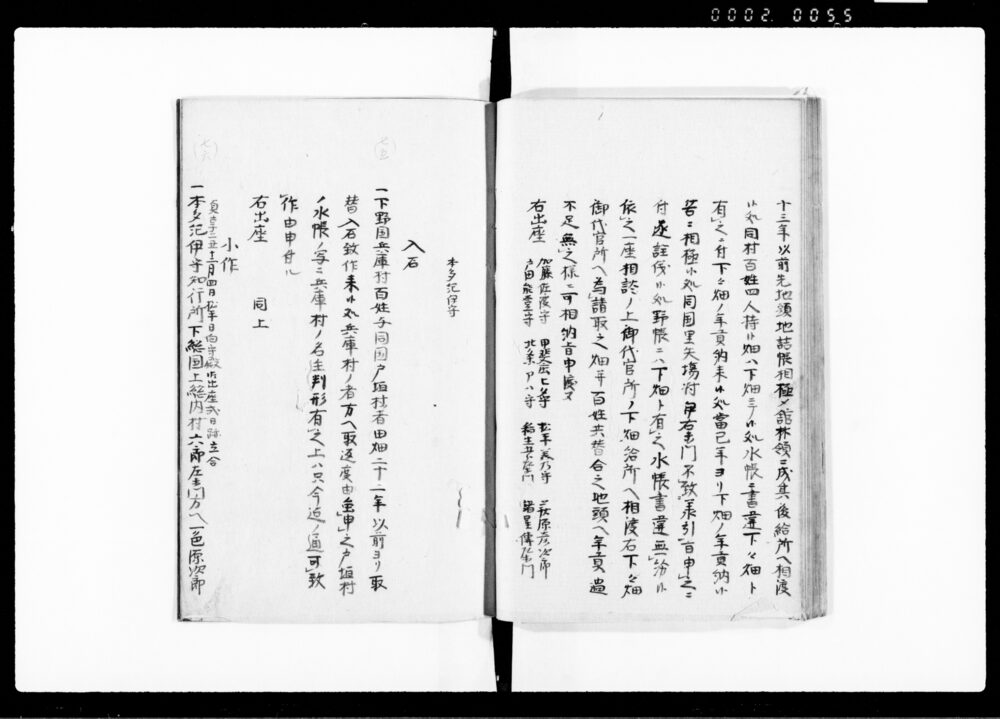 0002 0055
十三年以前先地頭地詰帳相極メ舘林領ニ成其後給所ヘ相渡
候処同村百姓四人持候畑ハ下畑ニテ候処水帳ニ書違下々畑ト
有之ニ付下々畑ノ年貢納来候処当己年ヨリ下畑ノ年貢納候
苦ニ相極候処同国里矢場村伊右衛門不致承引旨申之ニ
付遂詮儀候処野帳ニハ下畑ト有之水帳書違無紛候
依之一座相談ノ上御代官所ノ下畑給所ヘ相渡右下々畑
御代官所ヘ為請取之畑并百姓共替合之地頭ヘ年貢過
不足無之様ニ可相納旨申渡ス
右出座 加藤佐渡守 甲斐庄 松平美乃守 荻原彦次郎
戸田能登守 北条 稲生 諸星傳左衛門
本多紀伊守
入石
(七五)
一下野国兵庫村百姓与同国戸垣村者田畑二十二年以前ヨリ取
替入石致作来候処兵庫村ノ者方ヘ取返度由雖申之戸垣村
ノ水帳ノ写ニ兵庫村ノ名主判形有之上ハ只今迄ノ通可致
作由申付ル
右出座 同上
小作
(七六)
貞享二丑十二月四日 出座 立合
一本多紀伊守知行所下総国上総内村六郎左衛門方ヘ一色源次郎